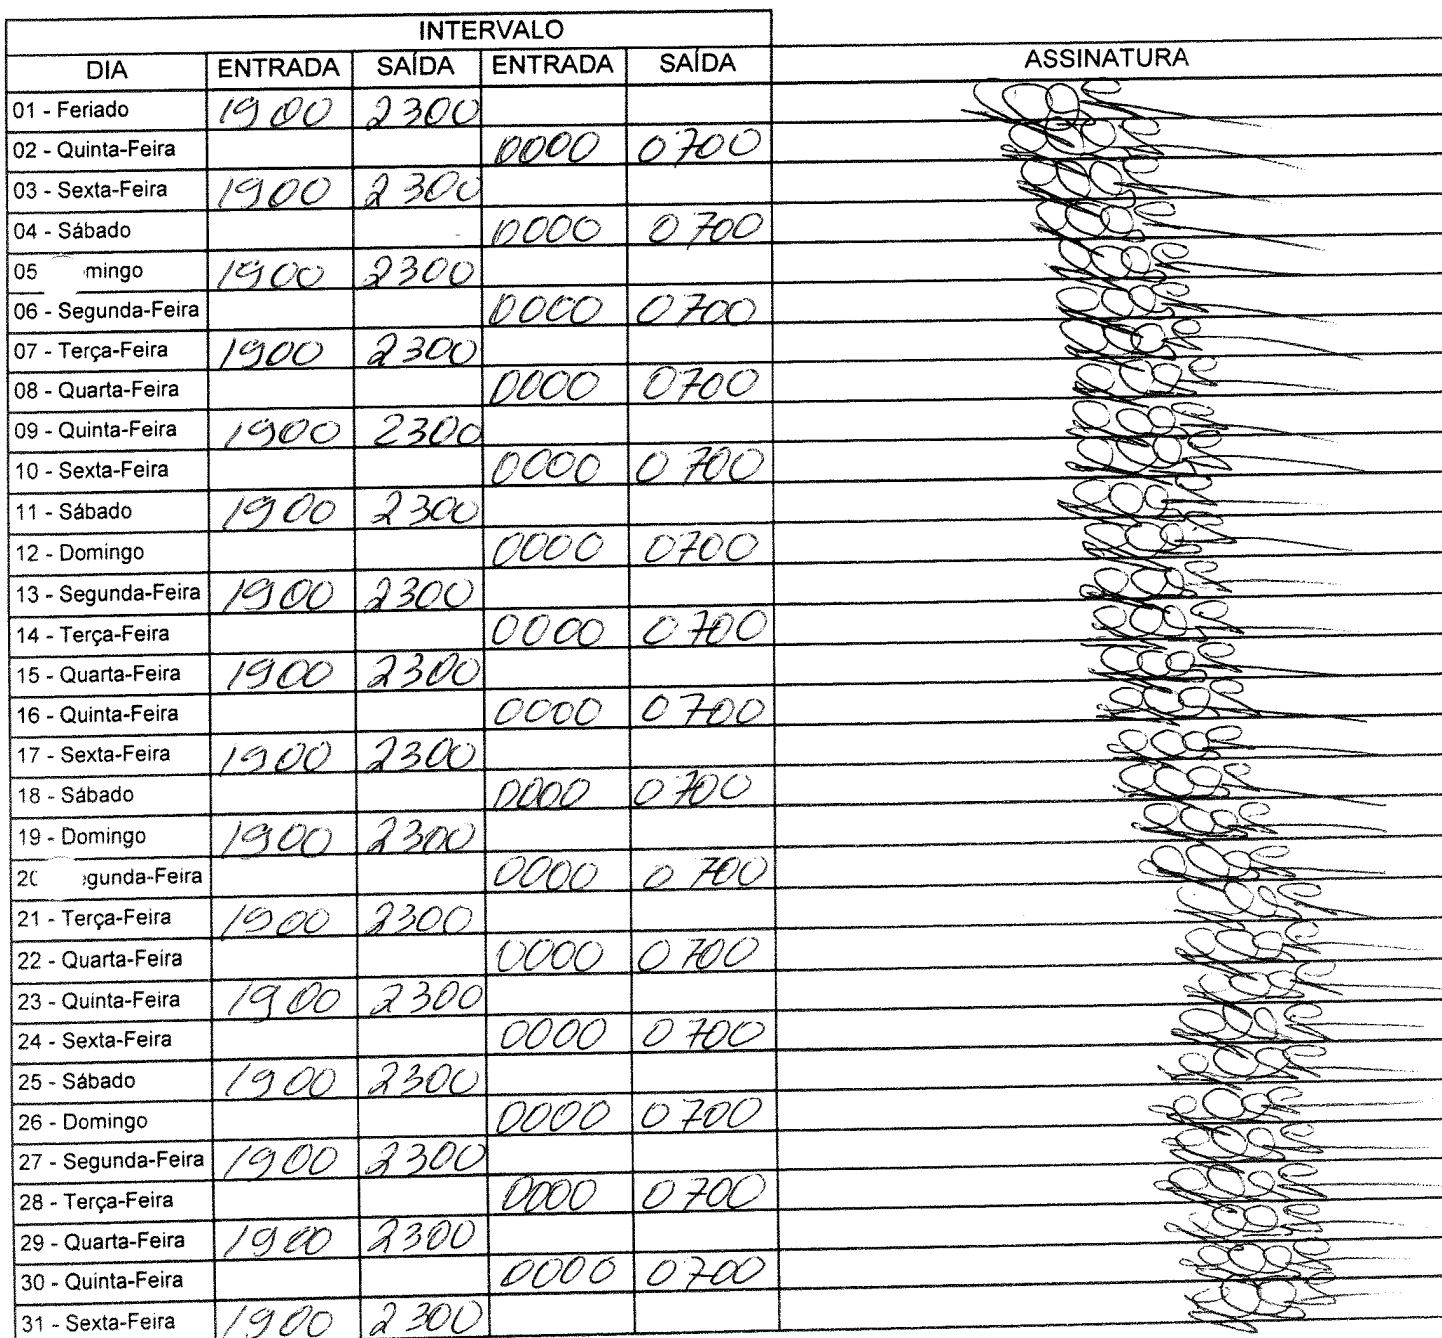 INTERVALO
DIA ENTRADA SAÍDA ENTRADA SAÍDA ASSINATURA
01 - Feriado 1900 2300
02 - Quinta-Feira 0000 0700
03 - Sexta-Feira 1900 2300
04 - Sábado 0000 0700
05 mingo 1900 2300
06 - Segunda-Feira 0000 0700
07 - Terça-Feira 1900 2300
08 - Quarta-Feira 0000 0700
09 - Quinta-Feira 1900 2300
10 - Sexta-Feira 0000 0700
11 - Sábado 1900 2300
12 - Domingo 0000 0700
13 - Segunda-Feira 1900 2300
14 - Terça-Feira 0000 0700
15 - Quarta-Feira 1900 2300
16 - Quinta-Feira 0000 0700
17 - Sexta-Feira 1900 2300
18 - Sábado 0000 0700
19 - Domingo 1900 2300
20 gunda-Feira 0000 0700
21 - Terça-Feira 1900 2300
22 - Quarta-Feira 0000 0700
23 - Quinta-Feira 1900 2300
24 - Sexta-Feira 0000 0700
25 - Sábado 1900 2300
26 - Domingo 0000 0700
27 - Segunda-Feira 1900 2300
28 - Terça-Feira 0000 0700
29 - Quarta-Feira 1900 2300
30 - Quinta-Feira 0000 0700
31 - Sexta-Feira 1900 2300